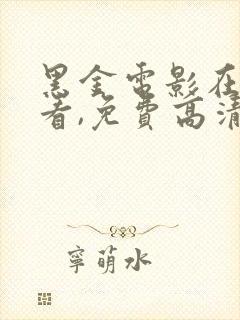 黑金電影在
看,免費高清
寧萌水